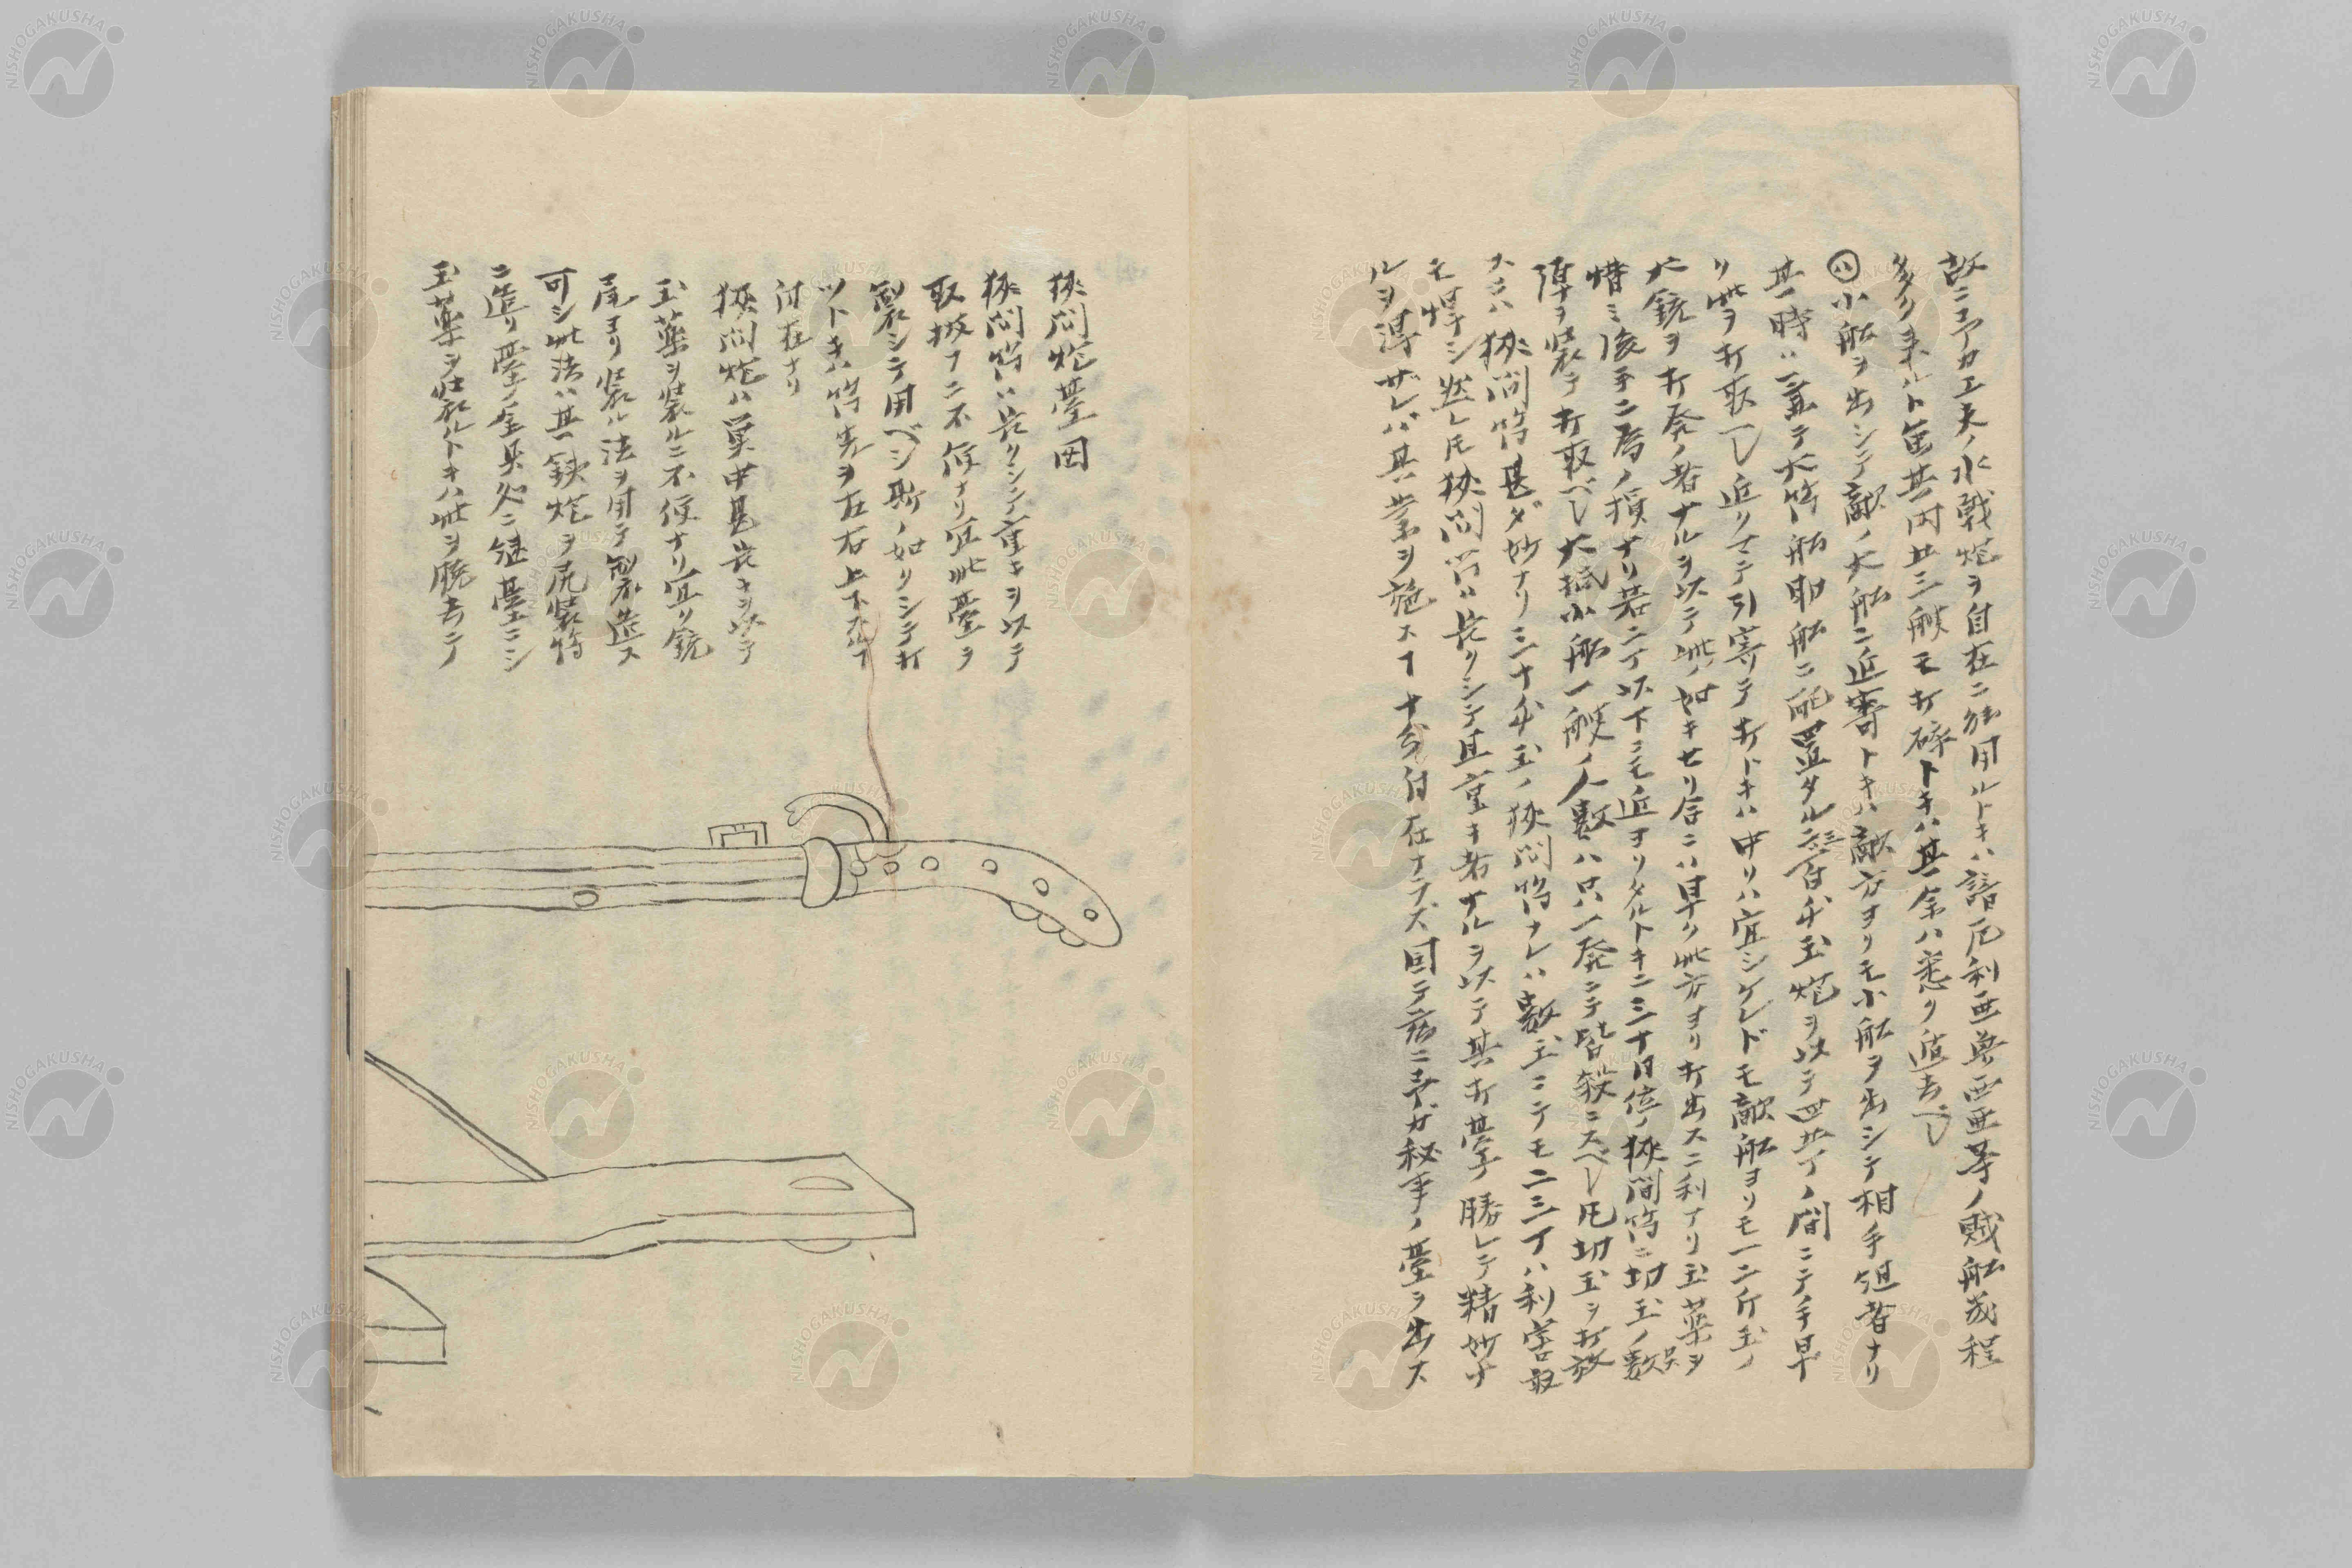 故ニ予カ工夫ノ水戦炮ヲ自在ニ能用ルトキハ諳厄利亜魯西亜等ノ賊舩茂程
多ク来ルト雖其内廿三艘モ打碎トキハ其余ハ悉ク逃去ベシ
㋩小舩ヲ出シテ敵ノ大舩ニ近寄トキハ敵方ヨリモ小舩ヲ出シテ相手組者ナリ
其時ハ二並テ大筒舩助舩ニ配置タル三百目玉炮ヲ以テ四五丁ノ間ニテ手早
ク此ヲ打取ベシ近クマテ引寄テ打ドキハ中リハ宜シケレドモ敵舩ヨリモ一二斤玉ノ
大銃ヲ打発ノ者ナルヲ以テ此ノ如キセリ合ニハ早ク此方ヨリ打出スニ利アリ玉薬ヲ
惜ミ後手ニ為ノ損ナリ若二丁以下ニモ近ヨリタルトキニ三十目位ノ狭間筒ニ切玉ノ数
弾ヲ装テ打取ベシ大抵小舩一艘ノ人数ハ只一発ニテ皆殺ニスベシ凡切玉ヲ打放
スニハ狭間筒甚ダ妙ナリ三十匁玉ノ狭間筒ナレハ数玉ニテモ二三丁ハ利害取
モ得シ然レ𪜈狭間筒ハ長クシテ且重キ者ナルヲ以テ其打臺ノ勝レテ精妙ナ
ルヲ得ザレバ其業ヲ施スヿ十分自在ナラズ因テ茲ニ予ガ秘事ノ臺ヲ出ス
狭間炮臺図
狭間筒ハ長クシテ重キヲ以テ
取扱フニ不便ナリ宜此臺ヲ
製シテ用ベシ斯ノ如クシテ打
ツトキハ筒先ヲ左右上下スルヿ
自在ナリ
狭間炮ハ巣中甚長キヲ以テ
玉薬ヲ装ルニ不便ナリ宜ク銃
尾ヨリ装ル法ヲ用テ製造ス
可シ此法ハ其鉄炮ヲ尻装筒
ニ造リ臺ノ金具処ニ継臺ニシ
玉薬ヲ装ルトキハ此ヲ脱去テ